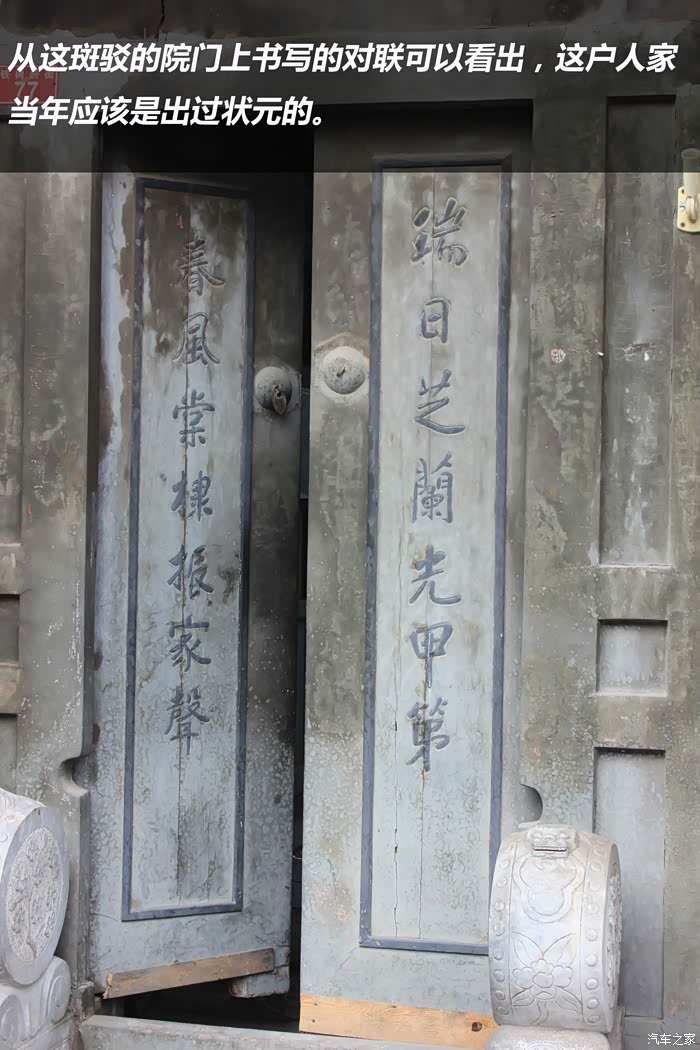 从这斑驳的院门上书写的对联可以看出，这户人家
当年应该是出过状元的。
77
瑞日芝蘭光甲第
春風棠棣振家聲
汽车之家